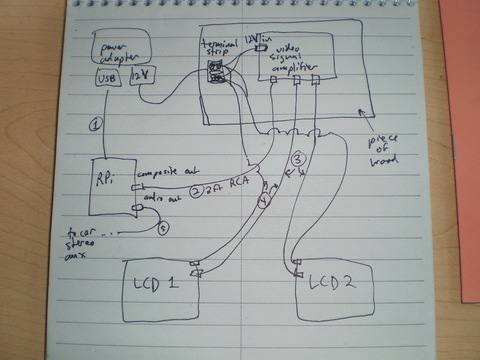 power
adapter
USB
12V
terminal
strip
12V in
video
signal
amplifier
piece
of
wood
1
RPi
composite out
audio out
2 3ft RCA
3
4
5
to car
stereo
aux
LCD 1
LCD 2